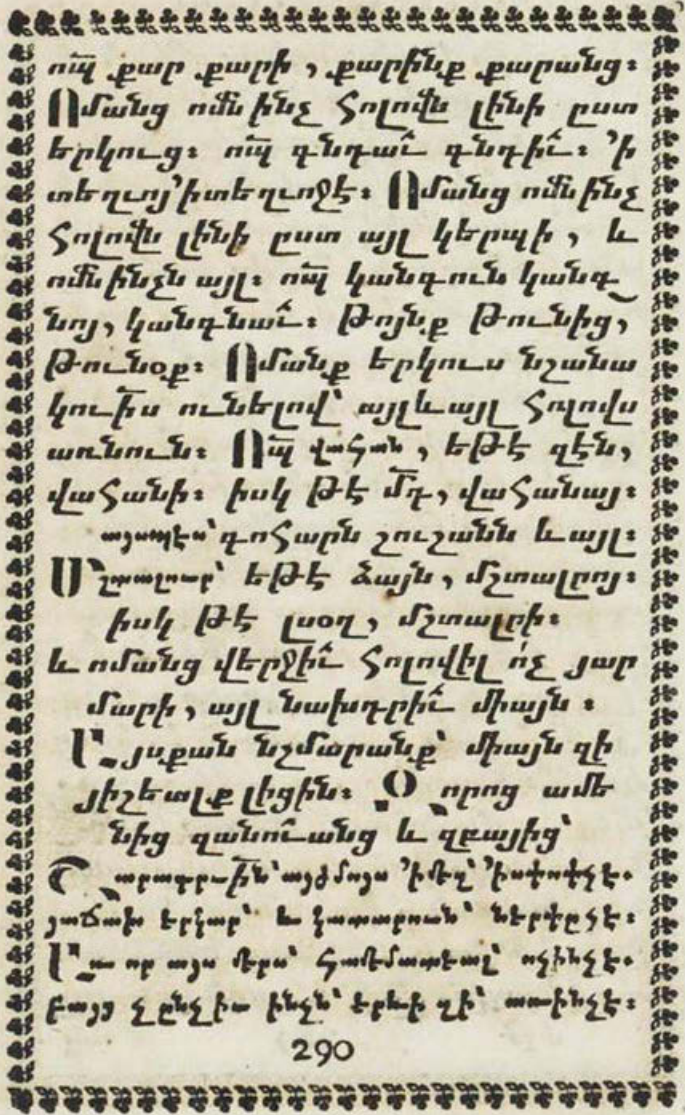 ո՟պ քար քարի , քարինք քարանց։
Ոմանց ոմն ինչ հոլովն լինի ըստ
երկուց։ ո՟պ գնդաւ՟ գնդիւ՟։ ՚ի
տեղւոյ ՚ի տեղւոջէ։ Ոմանց ոմն ինչ
հոլովն լինի ըստ այլ կերպի , և
ոմն ինչն այլ։ ո՟պ կանգուն կանգ
նոյ, կանգնաւ՟։ Թոյնք Թունից,
Թունօք։ Ոմանք երկուս նշանա
կուի՟ս ունելով՝ այլևայլ հոլովս
առնուն։ Ո՟պ վահան , եթէ զէն,
վահանի։ իսկ թէ մ՟դ, վահանայ։
այսպէս՝ գոհարն շուշանն և այլ։
Մշտալուր՝ եթէ ձայն , մշտալրոյ։
իսկ թէ լսօղ , մշտալրի։
և ոմանց վերջիւ՟ հոլովիլ ոչ յար
մարի , այլ նախդրիւ՟ միայն ։
Եւ յսքան նշմարանք՝ միայն զի
յիշեալք լիցին։ Օ որոց ամե
նից զանու՟անց և զբայից՝
յաճախ երկար՝ և կատարուն՝ ներփըհէ։
Եւ ա որ այս մերս՝ համեմատեալ՝ ոչինչ է։
բայց չընչիս ինչն՝ երևի զի՝ առ ինչ է։
290